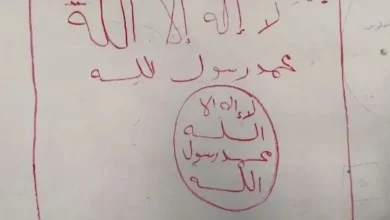 لا إله إلا الله
محمد رسول الله
لا إله الا
الله
محمد رسول
الله